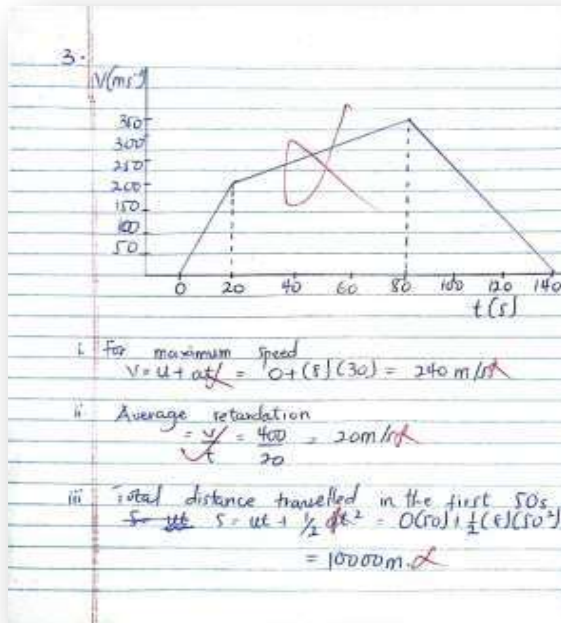 3.
V(ms⁻¹)
350
300
250
200
150
100
50
0 20 40 60 80 100 120 140
t(s)
i For maximum speed
V = u + at = 0 + (8)(30) = 240 m/s
ii Average retardation
= v/t = 400/20 = 20m/s
iii Total distance travelled in the first 50s
S = ut + 1/2 at² = 0(50) + 1/2(8)(50²)
= 10000m.